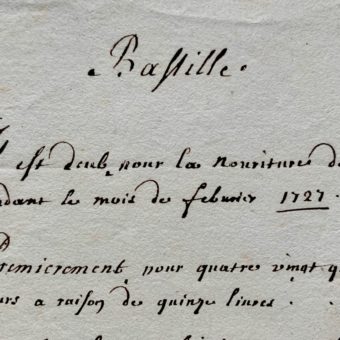 Bastille.
Il est deub pour la nouriture de
ndant le mois de feburier 1727.
Premierement pour quatre vingt q
urs a raison de quinze livres..